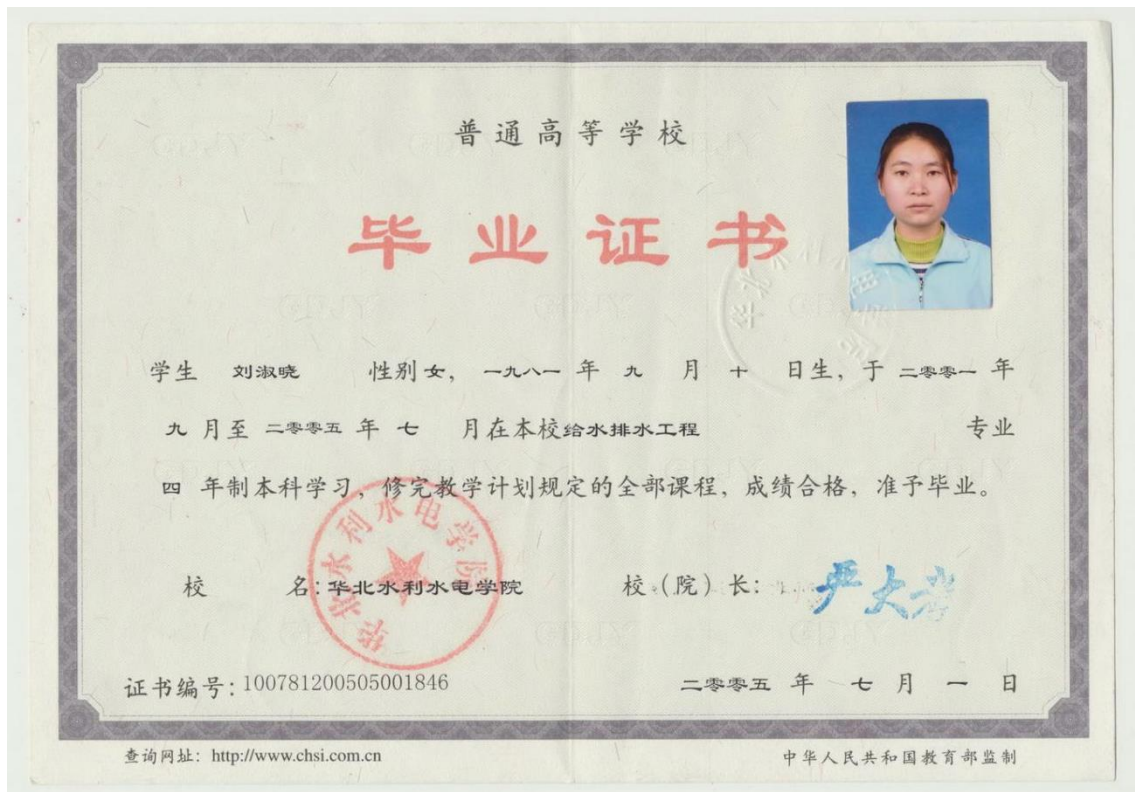 普通高等学校
毕业证书
学生 刘淑晓 性别女，一九八一 年 九 月 十 日生，于 二零零一 年
九 月至 二零零五 年 七 月在本校给水排水工程 专业
四 年制本科学习，修完教学计划规定的全部课程，成绩合格，准予毕业。
华北水利水电学院
校 名：华北水利水电学院 校（院）长： 严大考
证书编号：100781200505001846 二零零五 年 七 月 一 日
查询网址：http://www.chsi.com.cn 中华人民共和国教育部监制